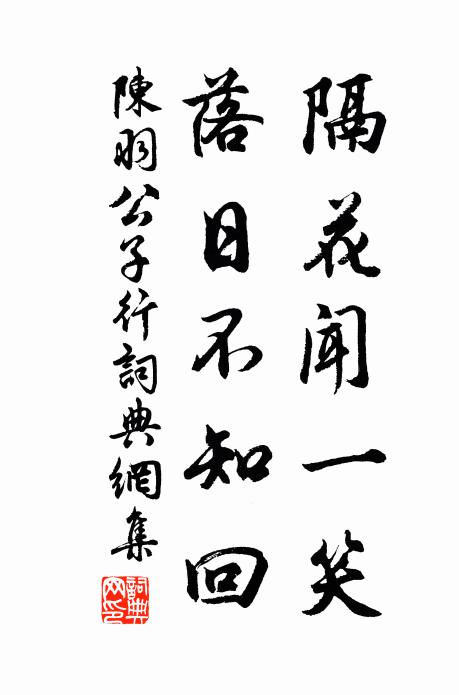 隔花闻一笑
落日不知回
陳羽公子行詞典網集
詞典网印